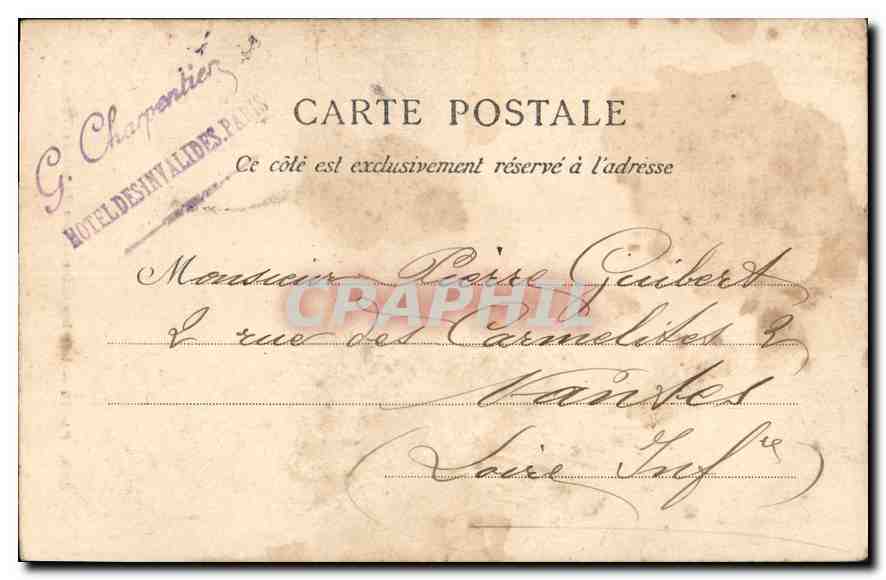 G. Charpentier
HOTEL DES INVALIDES. PARIS
CARTE POSTALE
Ce côté est exclusivement réservé à l'adresse
Monsieur Pierre Guibert
2 rue des Carmelites 2
Nantes
(Loire Inf^re)
CPAPHIL